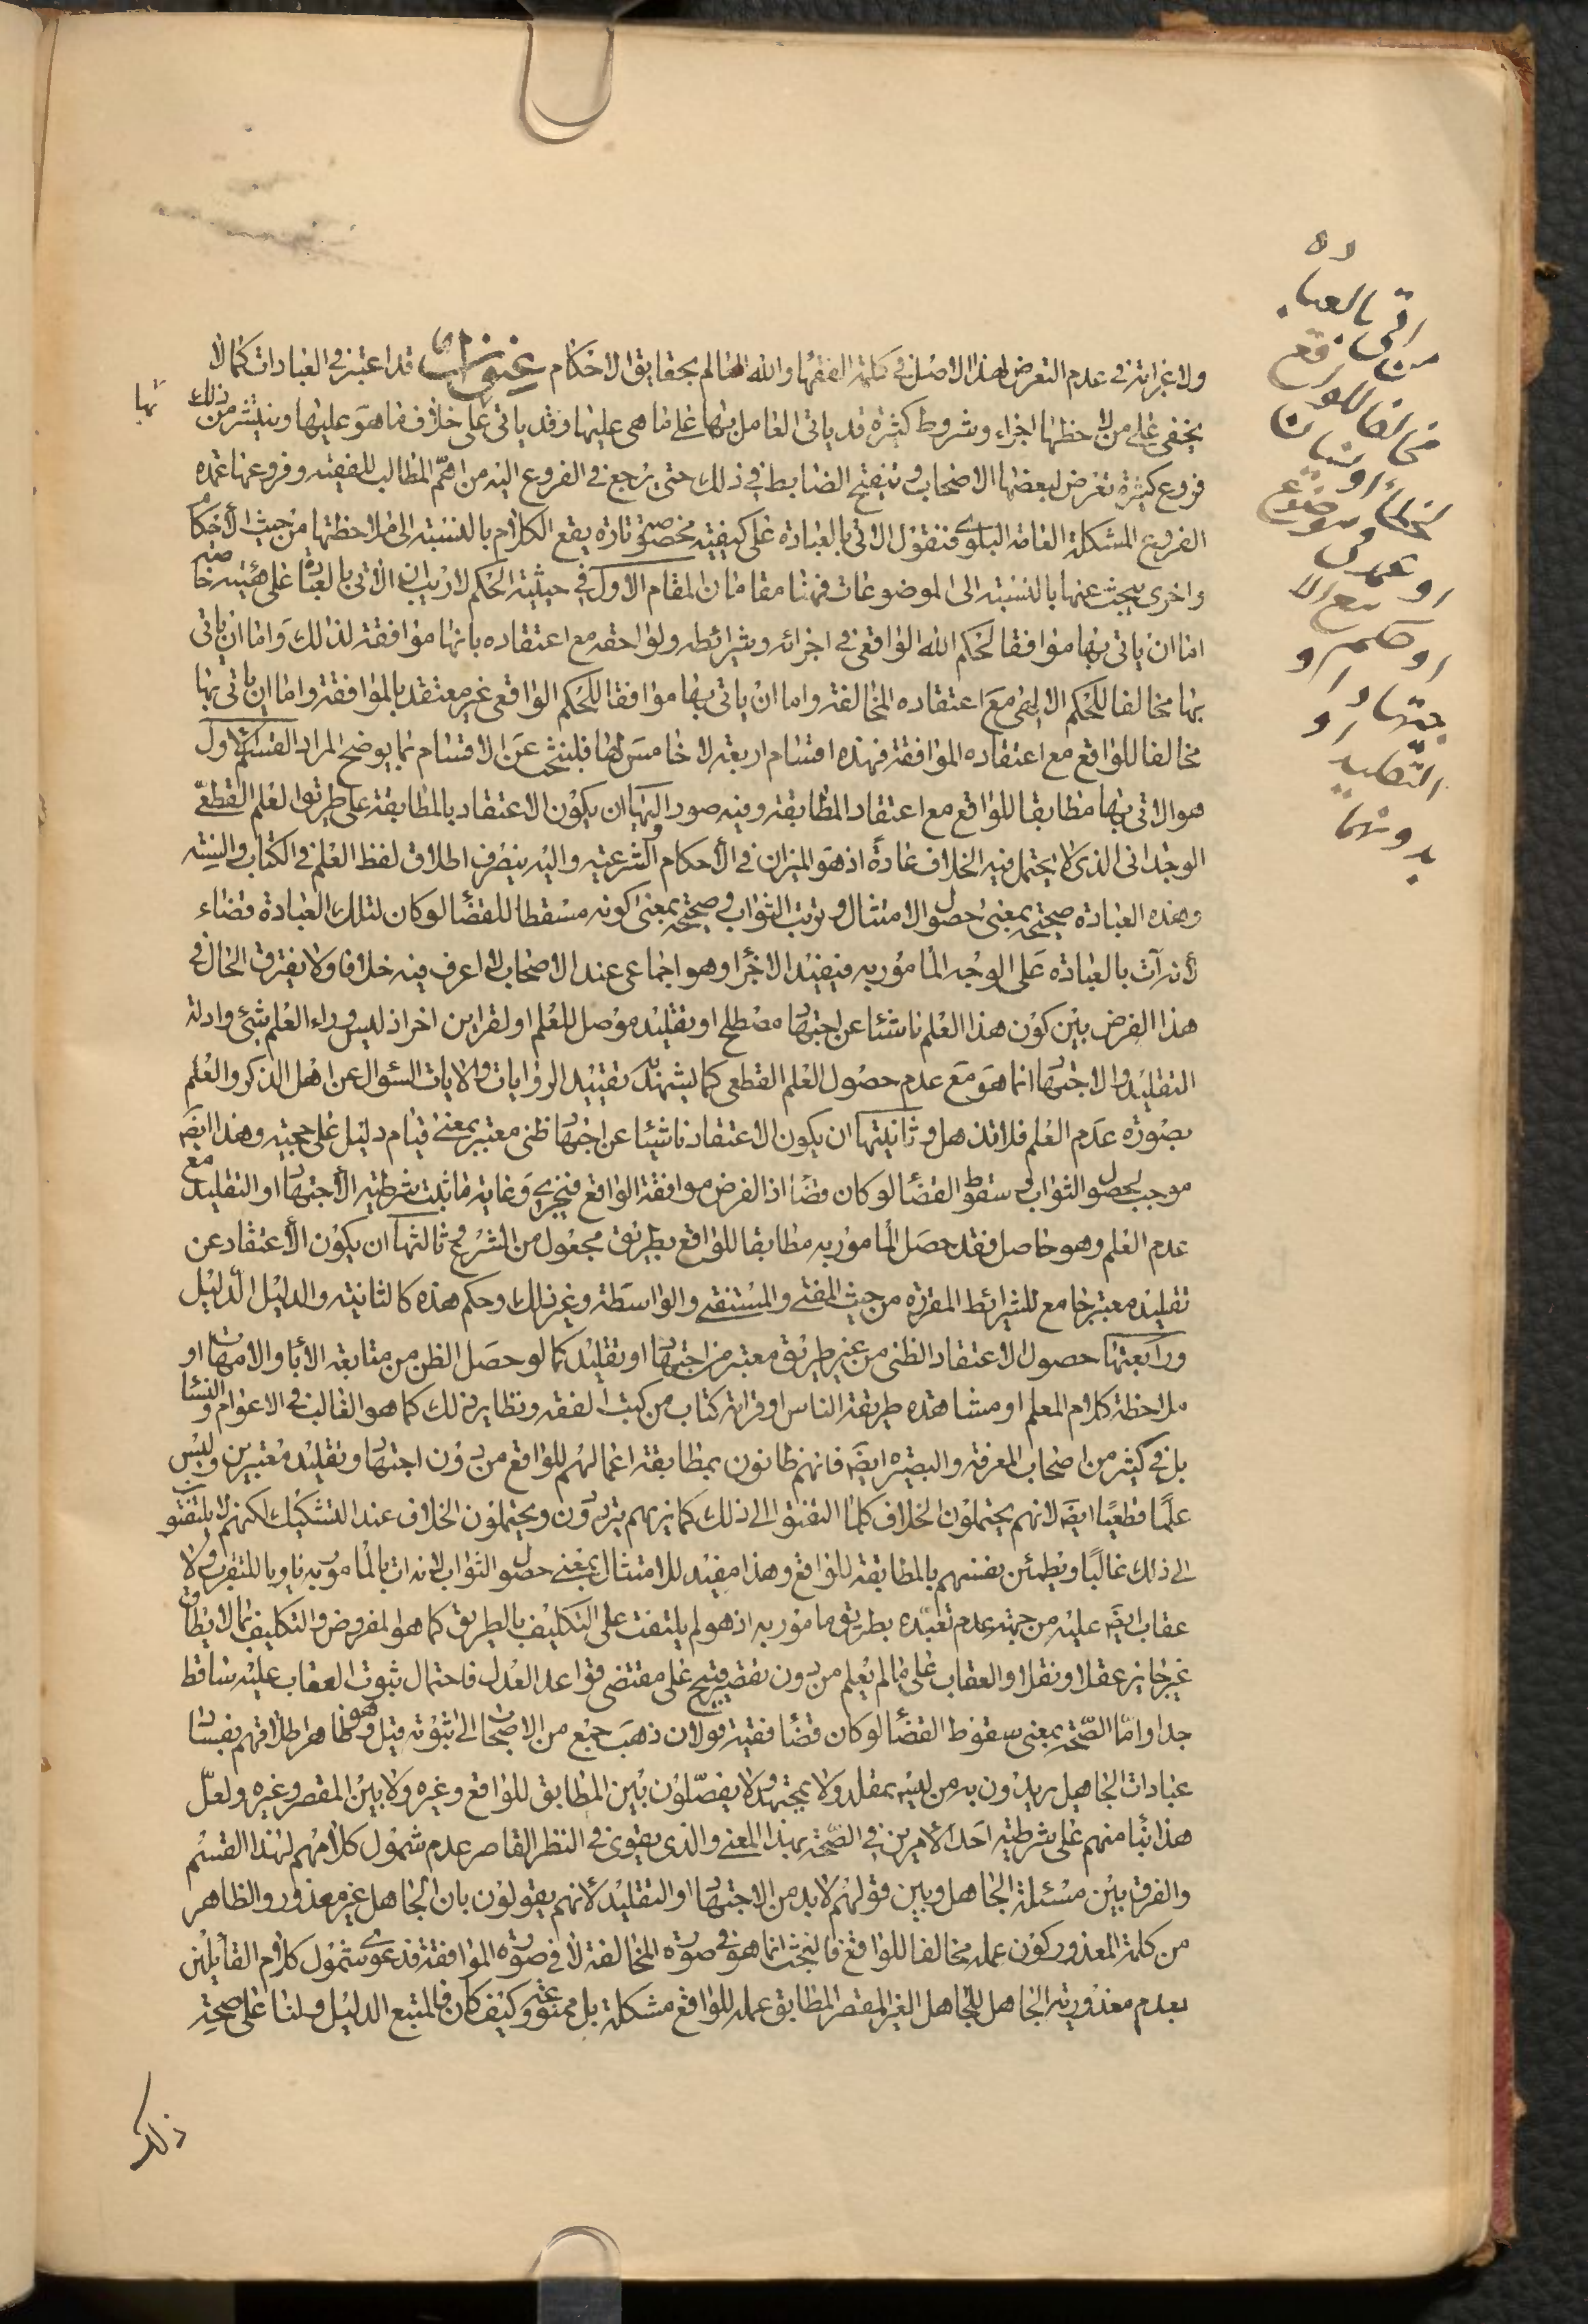 ولا غرابة في عدم التعرض لهذا الاصل في كلمة الفقهاء والله العالم بحقايق الاحكام عنوان قد اعتبر في العبادات كما لا
يخفى على من لاحظها اجزاء وشروط كثيرة قد ياتى العامل بها على ما هى عليها وقد ياتى على خلاف ما هو عليها وينتشر من ذلك
فروع كثيرة تعرض لبعضها الاصحاب وتنقيح الضابط في ذلك حتى يرجع في الفروع اليه من اهم المطالب للفقيه وفروعها عمده
الفروع المشكلة العامة البلوى فنقول الاتى بالعبادة على كيفية مخصوصة تارة يقع الكلام بالنسبة الى ملاحظتها من حيث الأحكام
واخرى يبحث عنها بالنسبة الى الموضوعات فهنا مقامان المقام الاول في حيثية الحكم لا ريب ان الاتى بالعبادة على هيئة خاصة
اما ان ياتى بها موافقا لحكم الله الواقعى في اجزائه وشرائطه ولواحقه مع اعتقاده بانها موافقة لذالك واما ان ياتى
بها مخالفا للحكم الالهى مع اعتقاده المخالفة واما ان ياتى بها موافقا للحكم الواقعى غير معتقد بالموافقة واما ان ياتى بها
مخالفا للواقع مع اعتقاده الموافقة فهذه اقسام اربعة لا خامس لها فلنبحث عن الاقسام بما يوضح المراد القسم الاول
هو الاتى بها مطابقا للواقع مع اعتقاد المطابقة وفيه صور اولها ان يكون الاعتقاد بالمطابقة على طريق العلم القطعى
الوجدانى الذى لا يحتمل فيه الخلاف عادة اذ هو الميزان في الأحكام الشرعية واليه ينصرف اطلاق لفظ العلم في الكتاب والسنة
وهذه العبادة صحيحة بمعنى حصول الامتثال وترتب الثواب وصحيحة بمعنى كونه مسقطا للقضاء لو كان لتلك العبادة قضاء
لأنه آت بالعبادة على الوجه المامور به فيفيد الاجزاء وهو اجماعى عند الاصحاب لا اعرف فيه خلافا ولا يفترق الحال في
هذا الفرض بين كون هذا العلم ناشئا عن اجتهاد مصطلح او تقليد موصل للعلم او لقراين اخر اذ ليس وراء العلم شئ وادلة
التقليد والاجتهاد انما هو مع عدم حصول العلم القطعى كما يشهد به تقييد الروايات والايات السئوال عن اهل الذكر والعلم
بصورة عدم العلم فلا تذهل وثانيتها ان يكون الاعتقاد ناشئا عن اجتهاد ظنى معتبر بمعنى قيام دليل على حجيته وهذا ايضا
موجب لحصول الثواب وسقوط القضاء لو كان قضاء اذ الفرض موافقة الواقع فيجزى وغاية ما ثبت شرطية الأجتهاد او التقليد مع
عدم العلم وهو حاصل فقد حصل المامور به مطابقا للواقع بطريق مجعول من الشرع وثالثها ان يكون الأعتقاد عن
تقليد معتبر جامع للشرائط المقررة من حيث المفتى والمستفتى والواسطة وغير ذلك وحكم هذه كالثانية والدليل الدليل
ورابعتها حصول الاعتقاد الظنى من غير طريق معتبر من اجتهاد او تقليد كما لو حصل الظن من متابعة الأباء والامهات او
ملاحظة كلام المعلم او مشاهدة طريقة الناس او قرائة كتاب من كتب الفقه ونظاير ذلك كما هو الغالب في الاعوام والنساء
بل في كثير من اصحاب المعرفة والبصيرة ايضا فانهم ظانون بمطابقة اعمالهم للواقع من دون اجتهاد وتقليد معتبرين وليس
علما قطعيا ايضا لانهم يحتملون الخلاف كلما التفتوا الى ذلك كما نريهم يترددون ويحتملون الخلاف عند التشكيك لكنهم لا يلتفتون
الى ذلك غالبا ويطمئن نفسهم بالمطابقة للواقع وهذا مفيد للامتثال بمعنى حصول الثواب لانه ات بالمامور به ناويا للتقرب ولا
عقاب ايضا عليه من جهة عدم تعبده بطريق مامور به اذ هو لم يلتفت على التكليف بالطريق كما هو المفروض والتكليف بما لا يطاق
غير جايز عقلا ونقلا والعقاب على ما لم يعلم من دون تقصير قبيح على مقتضى قواعد العدل فاحتمال ثبوت العقاب عليه ساقط
جدا واما الصحة بمعنى سقوط القضاء لو كان قضاء ففيه قولان ذهب جمع من الاصحاب الى ثبوته قيل وهو ظاهر اطلاقهم بفساد
عبادات الجاهل يريدون به من ليس بمقلد ولا بمجتهد ولا يفصلون بين المطابق للواقع وغيره ولا بين المقصر وغيره ولعل
هذا بناء منهم على شرطية احد الأمرين في الصحة بهذا المعنى والذى يقوى في النظر القاصر عدم شمول كلامهم لهذا القسم
والفرق بين مسئلة الجاهل وبين قولهم لا بد من الاجتهاد او التقليد لأنهم يقولون بان الجاهل غير معذور والظاهر
من كلمة المعذور كون عمله مخالفا للواقع فالبحث انما هو في صورة المخالفة لا في صورة الموافقة فدعوى شمول كلام القائلين
بعدم معذورية الجاهل للجاهل الغير المقصر المطابق عمله للواقع مشكلة بل ممنوعة وكيف كان فالمتبع الدليل ولنا على صحة
ذلك
بها
اتى بالعباده
مخالفا للواقع
خطأ او نسيانا
او عمدا
او حكم
جتهاد او
التقليد او
بدونهما